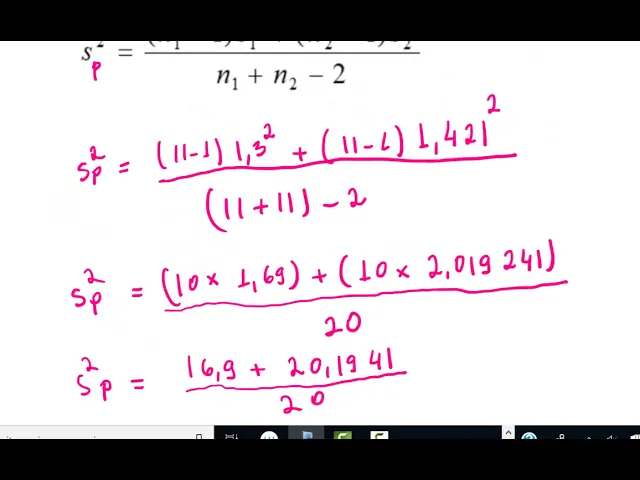 s_p^2 =
n₁ + n₂ − 2
Sp² = (11-1) 1,3² + (11-1) 1,421²
(11+11) - 2
Sp² = (10 × 1,69) + (10 × 2,019 241)
20
Sp² = 16,9 + 20,1941
20